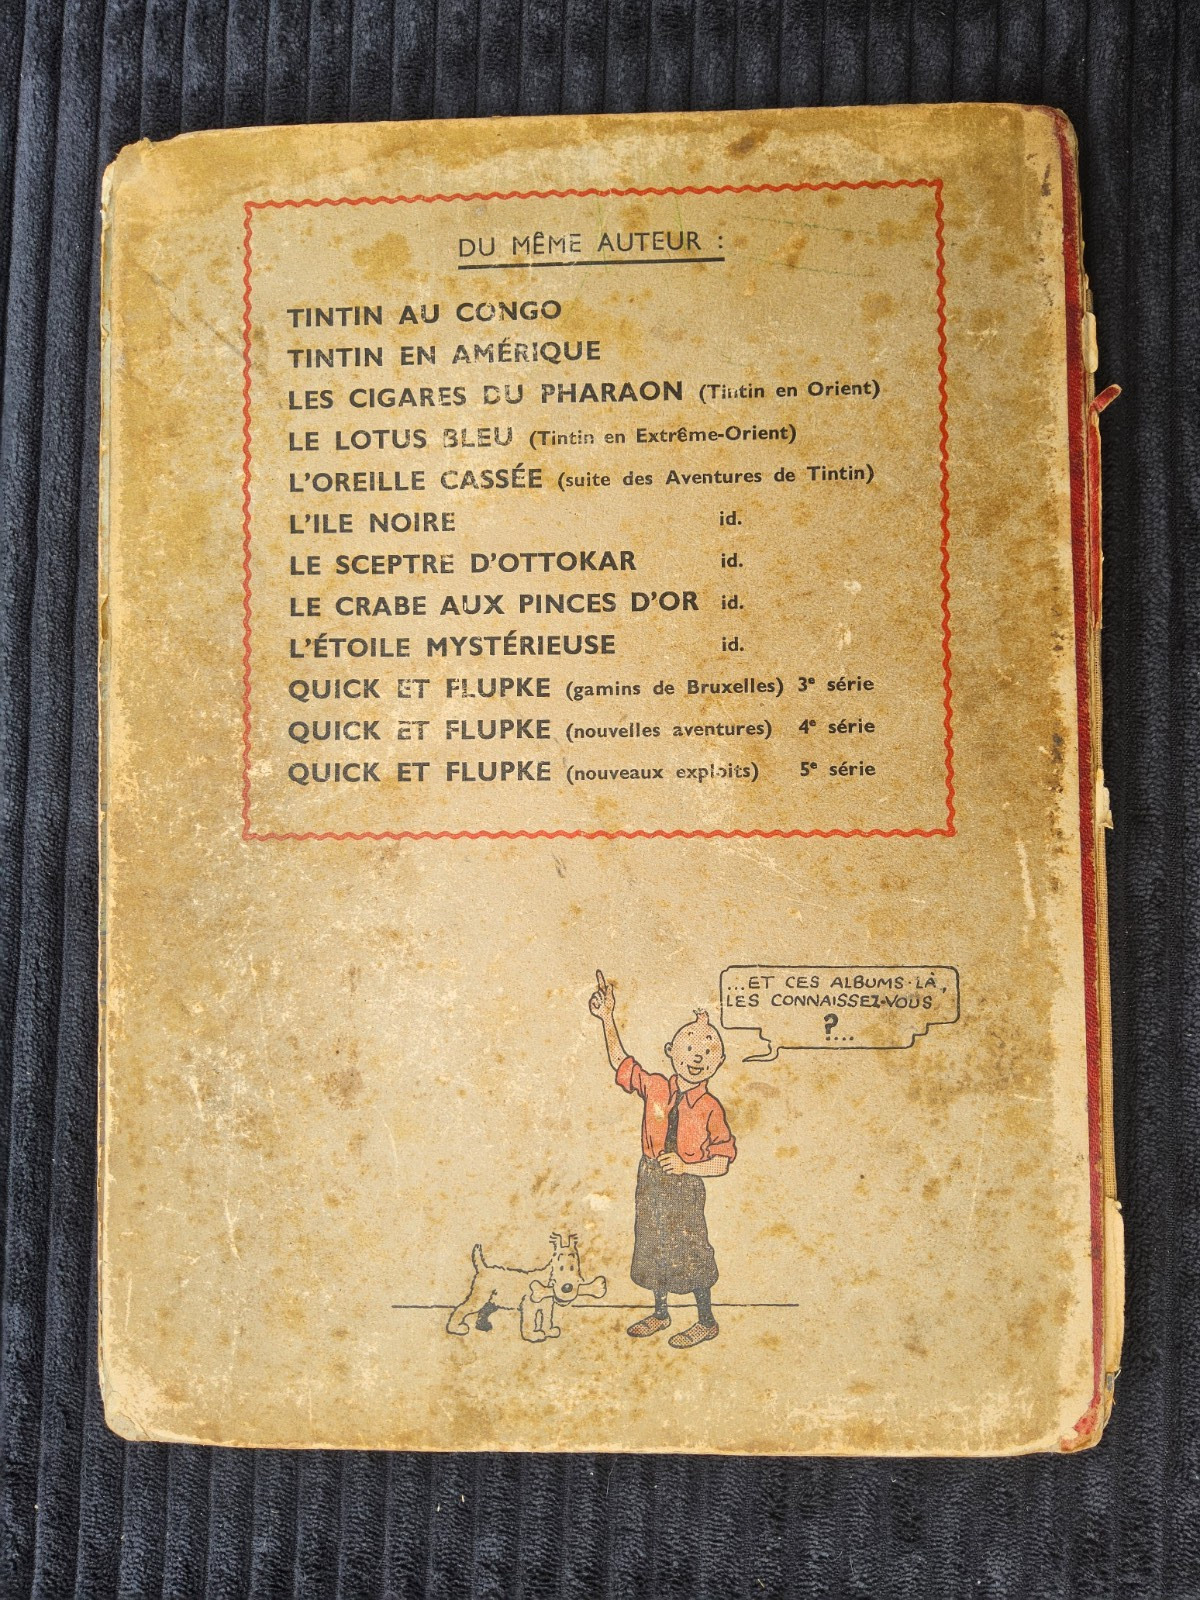 DU MÊME AUTEUR :
TINTIN AU CONGO
TINTIN EN AMÉRIQUE
LES CIGARES DU PHARAON (Tintin en Orient)
LE LOTUS BLEU (Tintin en Extrême-Orient)
L'OREILLE CASSÉE (suite des Aventures de Tintin)
L'ILE NOIRE id.
LE SCEPTRE D'OTTOKAR id.
LE CRABE AUX PINCES D'OR id.
L'ÉTOILE MYSTÉRIEUSE id.
QUICK ET FLUPKE (gamins de Bruxelles) 3e série
QUICK ET FLUPKE (nouvelles aventures) 4e série
QUICK ET FLUPKE (nouveaux exploits) 5e série
...ET CES ALBUMS-LÀ,
LES CONNAISSEZ-VOUS
?...